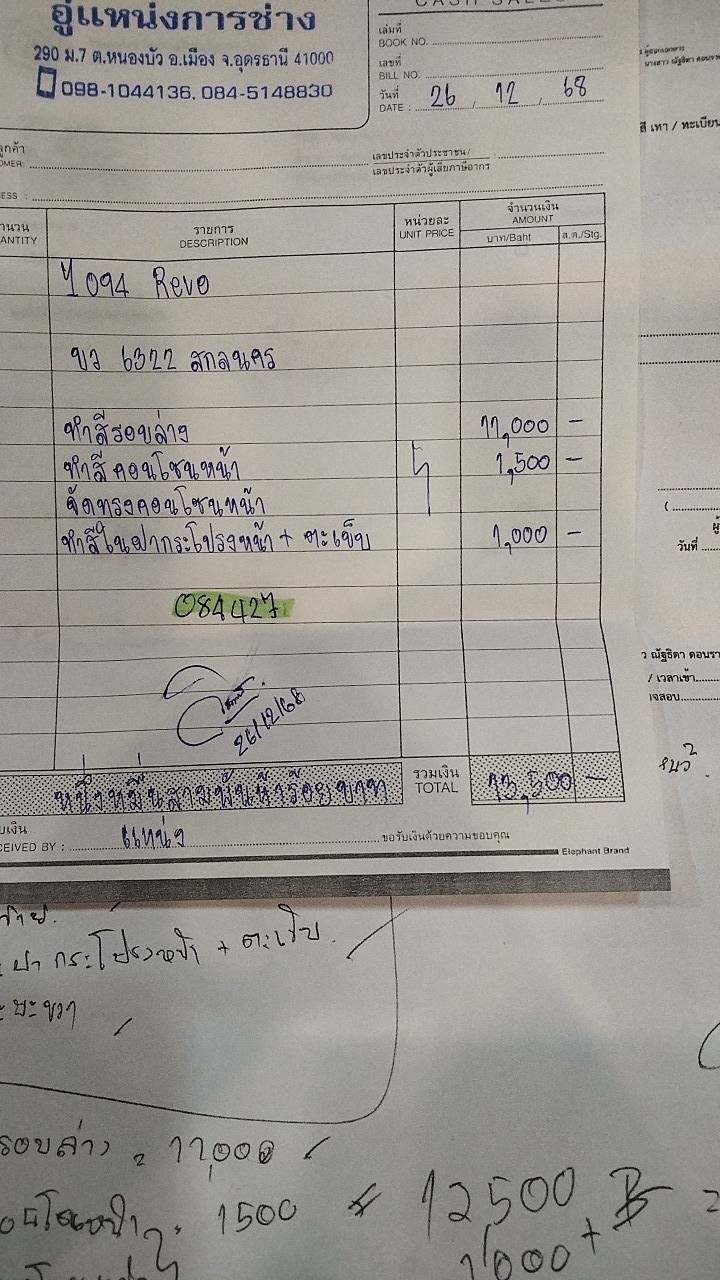 อู่แหน่งการช่าง
290 ม.7 ต.หนองบัว อ.เมือง จ.อุดรธานี 41000
098-1044136, 084-5148830
เล่มที่
BOOK NO.
เลขที่
BILL NO.
วันที่
DATE : 26 / 12 / 68
เลขประจำตัวประชาชน/
เลขประจำตัวผู้เสียภาษีอากร
รายการ
DESCRIPTION
หน่วยละ
UNIT PRICE
จำนวนเงิน
AMOUNT
บาท/Baht
ส.ต./Stg.
1094 Revo
ขว 6322 สกลนคร
ทำสีรอบล่าง 11,000 -
ทำสีคอนโซนหน้า 1,500 -
จัดทรงคอนโซนหน้า
ทำสีในฝากระโปรงหน้า + ตะเข็บ 1,000 -
084427
26/12/68
หนึ่งหมื่นสามพันห้าร้อยบาท
รวมเงิน
TOTAL
13,500 -
แหน่ง
ขอรับเงินด้วยความขอบคุณ
Elephant Brand
สี เทา / ทะเบียน
วันที่
ว ณัฐธิดา ดอนรา
/ เวลาเข้า
ฝากระโปรงหน้า + ตะเข็บ
รอบล่าง = 11,000
1500
12500 ฿
1,000 +